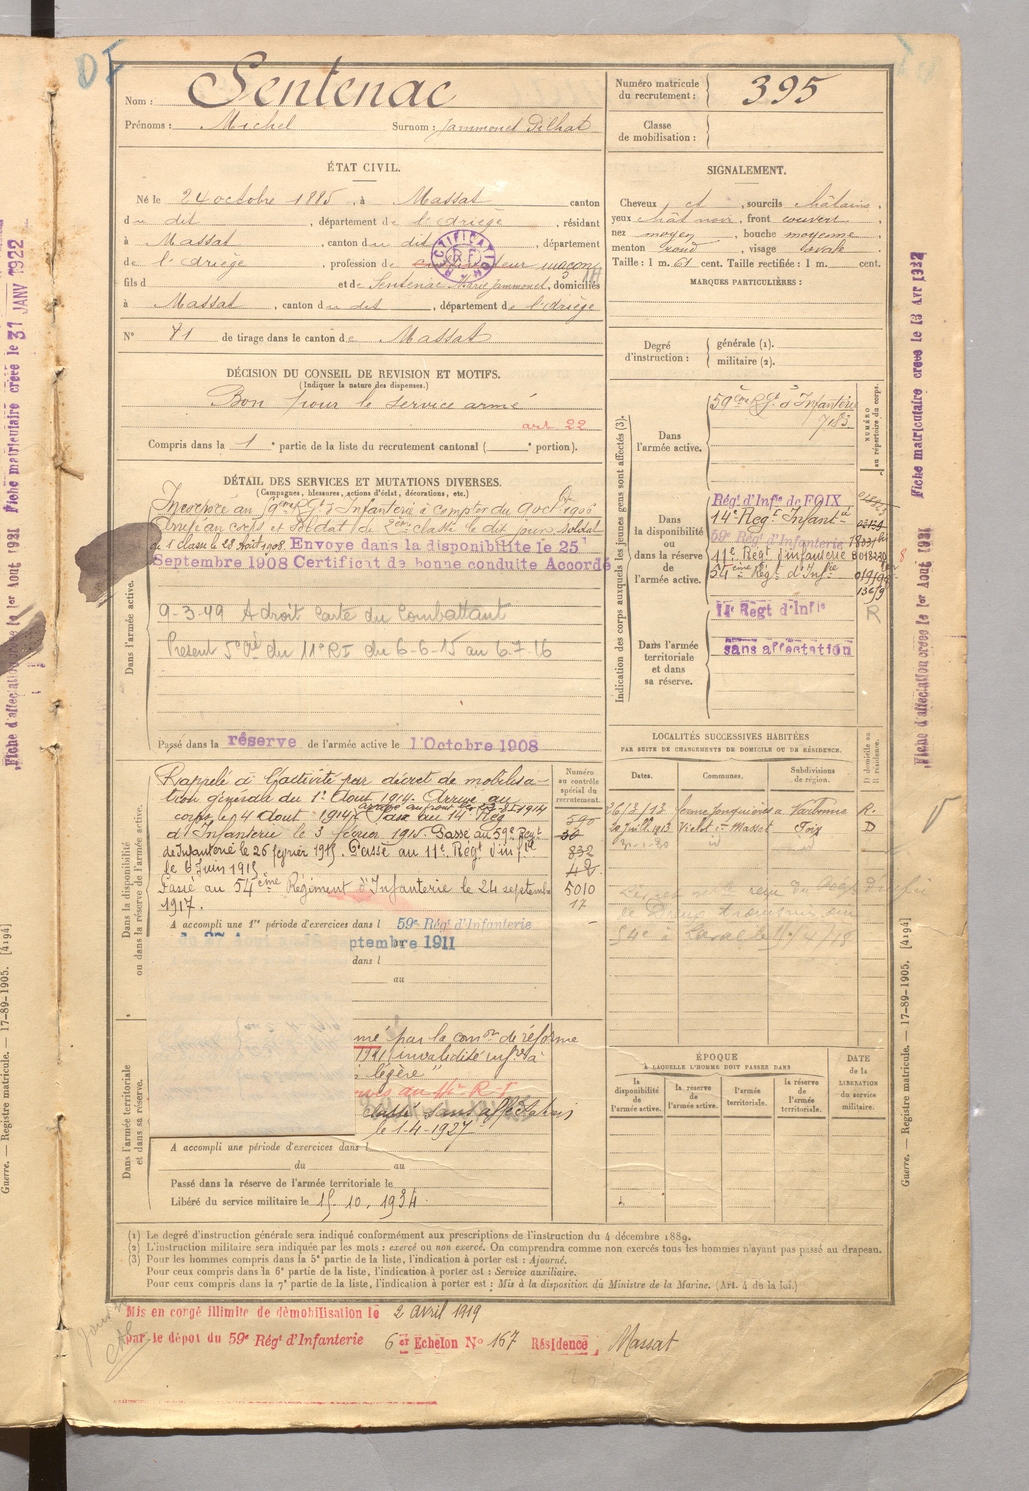 Nom : Sentenac
Prénoms : Michel Surnom : Jammonet Pilhat
Numéro matricule du recrutement : 395
Classe de mobilisation :
ÉTAT CIVIL.
Né le 24 octobre 1885, à Massat canton
du dit, département de l'Ariège, résidant
à Massat, canton du dit, département
de l'Ariège, profession de maçon
fils d et de Sentenac Marie Jammonet, domiciliés
à Massat, canton du dit, département de l'Ariège
N° 71 de tirage dans le canton de Massat
DÉCISION DU CONSEIL DE REVISION ET MOTIFS.
(Indiquer la nature des dispenses.)
Bon pour le service armé
art 22
Compris dans la 1e partie de la liste du recrutement cantonal ( e portion).
DÉTAIL DES SERVICES ET MUTATIONS DIVERSES.
(Campagnes, blessures, actions d'éclat, décorations, etc.)
Dans l'armée active.
Incorporé au 59eme Rgt d'Infanterie à compter du 9 oct. 1906
Arrivé au corps et soldat de 2eme classe le dit jour. Soldat
de 1e classe le 28 août 1908. Envoyé dans la disponibilité le 25
Septembre 1908 Certificat de bonne conduite Accordé
9-3-49 A droit Carte du Combattant
Présent 5e Cie du 11e RI du 6-6-15 au 6-7-16
Passé dans la réserve de l'armée active le 1 Octobre 1908
Dans la disponibilité ou dans la réserve de l'armée active.
Numéro au contrôle spécial du recrutement.
Rappelé à l'activité par décret de mobilisa-
tion générale du 1er Aout 1914. Arrivé au
corps le 4 Aout 1914. Passé au 14 Rég
d'Infanterie le 3 février 1915. Passé au 59e Régt
d'Infanterie le 26 février 1915. Passé au 11e Régt d'Infie
le 6 Juin 1915
Passé au 54ème Régiment d'Infanterie le 24 septembre
1917.
590
30
832
42
5010
17
A accompli une 1re période d'exercices dans l 59e Régt d'Infanterie
ptembre 1911
dans l
au
Dans l'armée territoriale et dans sa réserve.
mé par la comon de réforme
1921 invalidité infre à
légère"
au 14e R.I
Classé Sans affectation
le 1-4-1927
A accompli une période d'exercices dans l
du au
Passé dans la réserve de l'armée territoriale le
Libéré du service militaire le 15.10.1934.
SIGNALEMENT.
Cheveux et, sourcils châtains,
yeux chât noir, front couvert
nez moyen, bouche moyenne,
menton rond, visage ovale.
Taille : 1 m. 61 cent. Taille rectifiée : 1 m. cent.
MARQUES PARTICULIÈRES :
Degré d'instruction :
générale (1).
militaire (2).
Indication des corps auxquels les jeunes gens sont affectés (3).
NUMÉRO au répertoire du corps.
Dans l'armée active.
59ème Rgt d'Infanterie
7183
Dans la disponibilité ou dans la réserve de l'armée active.
Régt d'Infie de FOIX
14e Regt Infant
59e Régt d'Infanterie
11e Régt d'infanterie
54ème Régt d'Infie
Dans l'armée territoriale et dans sa réserve.
14e Regt d'Infie
R
sans affectation
LOCALITÉS SUCCESSIVES HABITÉES
PAR SUITE DE CHANGEMENTS DE DOMICILE OU DE RÉSIDENCE.
Dates. Communes. Subdivisions de région. D domicile ou R résidence.
26/3/13 Narbonne R.
20 Juill. 1913 Foix D
ÉPOQUE
À LAQUELLE L'HOMME DOIT PASSER DANS
la disponibilité de l'armée active.
la réserve de l'armée active.
l'armée territoriale.
la réserve de l'armée territoriale.
DATE de la LIBÉRATION du service militaire.
(1) Le degré d'instruction générale sera indiqué conformément aux prescriptions de l'instruction du 4 décembre 1889.
(2) L'instruction militaire sera indiquée par les mots : exercé ou non exercé. On comprendra comme non exercés tous les hommes n'ayant pas passé au drapeau.
(3) Pour les hommes compris dans la 5e partie de la liste, l'indication à porter est : Ajourné.
Pour ceux compris dans la 6e partie de la liste, l'indication à porter est : Service auxiliaire.
Pour ceux compris dans la 7e partie de la liste, l'indication à porter est : Mis à la disposition du Ministre de la Marine. (Art. 4 de la loi.)
Mis en congé illimité de démobilisation le 2 avril 1919
par le dépôt du 59e Régt d'Infanterie 6er Echelon No 167 Résidence, Massat
Fiche d'affectation créée le 1er Aout 1921 Fiche matriculaire créée le 31 JANV 1922
Guerre. — Registre matricule. — 17-89-1905. [4194]
Fiche d'affectation créée le 1er Aout 1921 Fiche matriculaire créée le 13 Avr 1922
Guerre. — Registre matricule. — 17-89-1905. [4194]